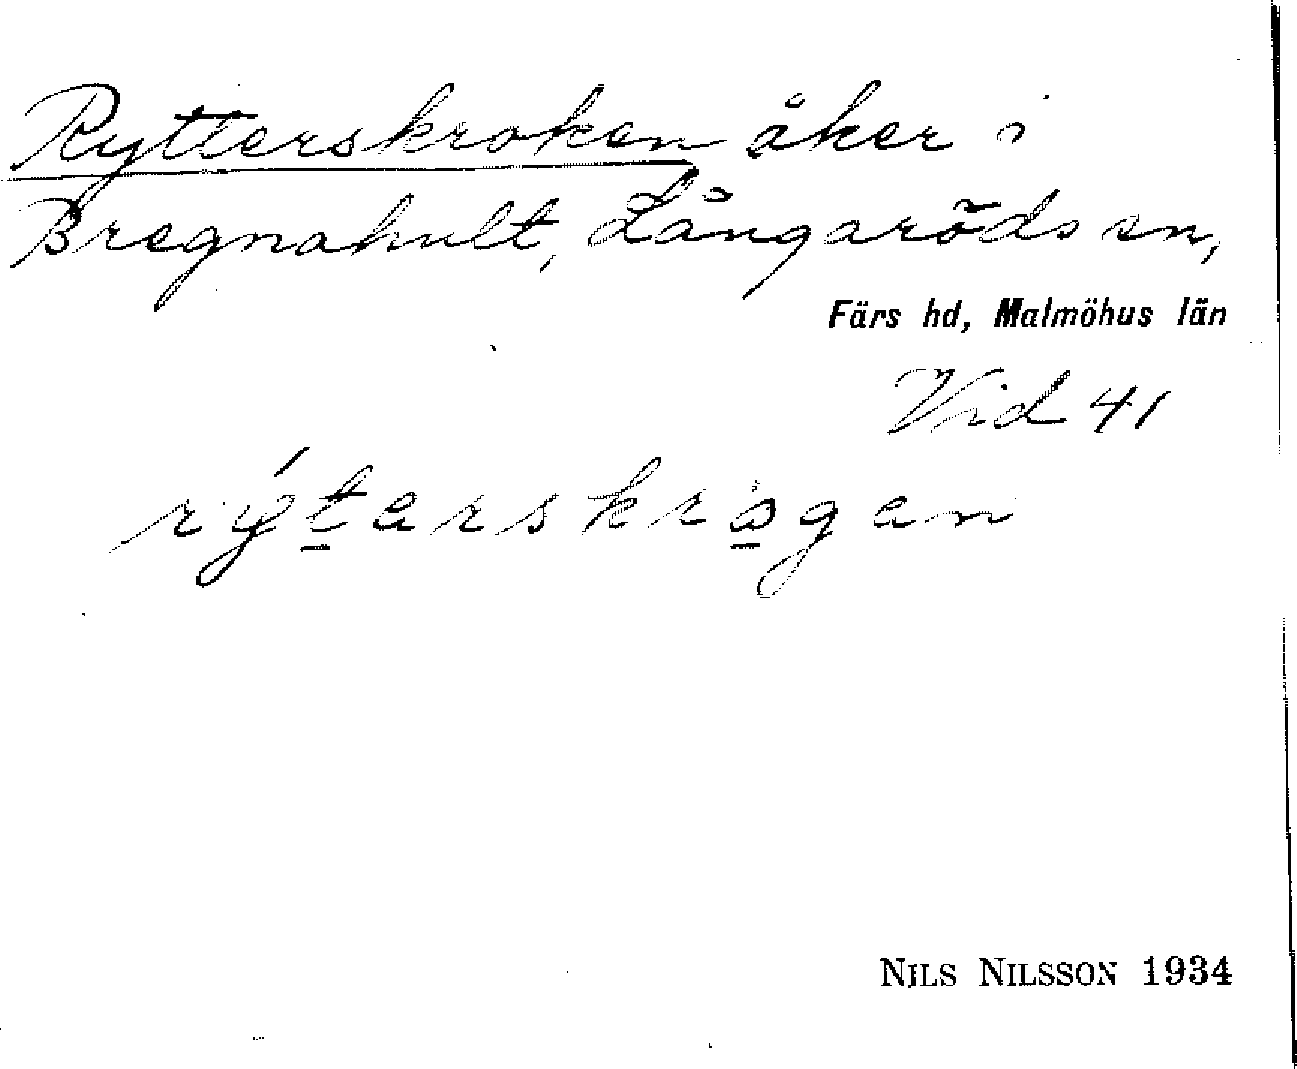 Rytterskroken åker i
Bregnahult, Långaröds sn,
Färs hd, Malmöhus län
Vid 41
rýt̲erskro̲gen
NILS NILSSON 1934